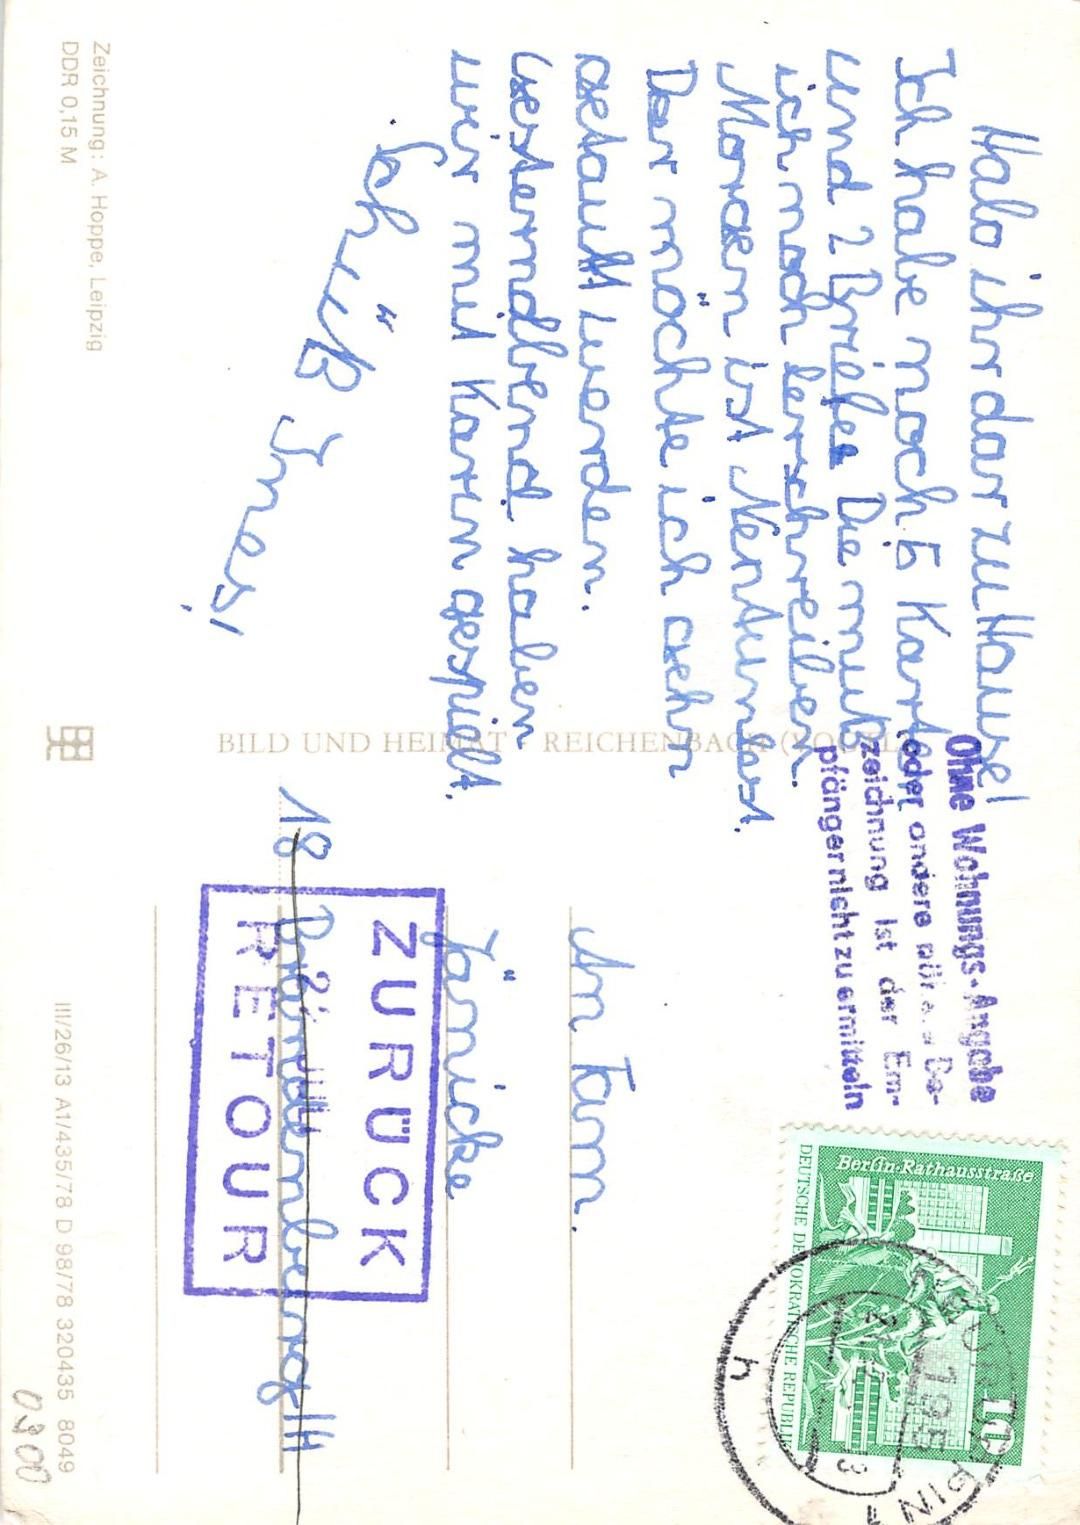 Halo ihr dar zu Hause!
Ich habe noch 5 Karten
und 2 Briefe. Die muß
ich noch ferschreiben.
Morgen ist Nentunfest.
Der möchte ich gehrn
getauft werden.
Gesternabend haben
wir mit Karin gespielt.
Schüß Ines!
An Fam.
Jänicke
18 Brandenburg
ZURÜCK
RETOUR
Ohne Wohnungs-Angabe
oder andere Be-
zeichnung ist der Em-
pfänger nicht zu ermitteln
Berlin-Rathausstraße
DEUTSCHE DEMOKRATISCHE REPUBLIK
10
BILD UND HEIMAT REICHENBACH (VOGTL)
Zeichnung: A. Hoppe, Leipzig
DDR 0,15 M
III/26/13 A1/435/78 D 98/78 320435 8049
0300